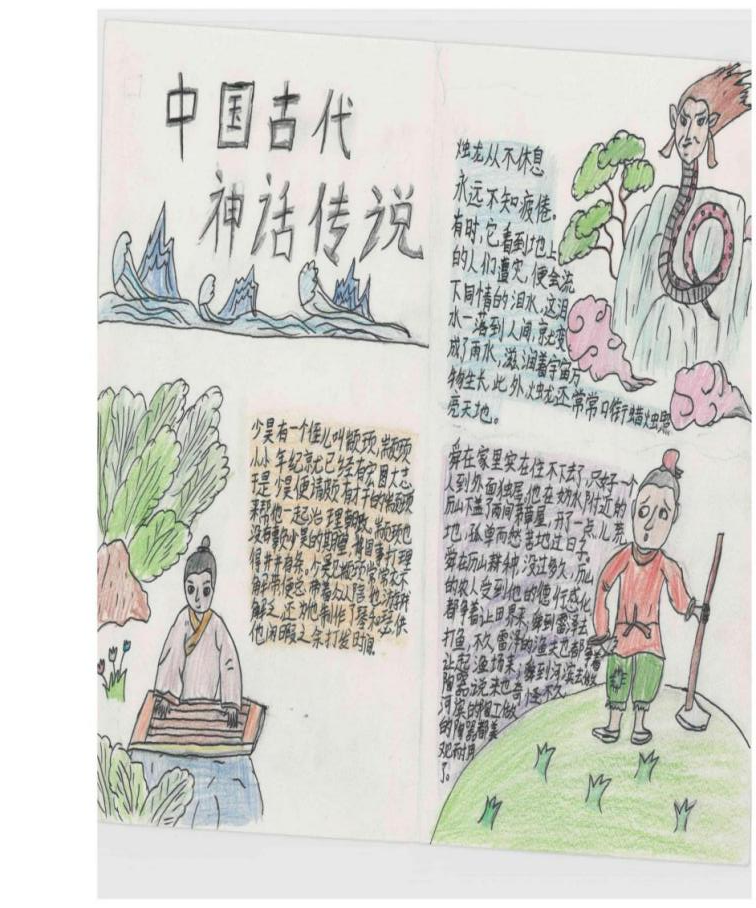 中国古代
神话传说
烛龙从不休息
永远不知疲倦。
有时，它看到地上
的人们遭灾，便会流
下同情的泪水，这泪
水一落到人间，就变
成了雨水，滋润着宇宙万
物生长，此外，烛龙还常常口衔蜡烛照
亮天地。
少昊有一个侄儿叫颛顼，颛顼
小小年纪就已经有宏图大志
于是少昊便请颇有才干的颛顼
来帮他一起治理朝政，颛顼也
没有辜负少昊的期望，将国事打理
得井井有条。少昊见颛顼常常
解
解乏，还为他制作了琴和瑟，供
他闲暇之余打发时间。
舜在家里实在住不下去了，只好一个
人到外面独居，他在妫水附近的
历山下盖了两间茅草屋，开了一点儿荒
地，孤单而愁苦地过日子。
舜在历山耕种，没过多久，历山
的农人受到他的德行感化
都争着让田界。舜到雷泽去
打鱼，不久，雷泽的渔夫也都争着
让起渔场来。舜到河滨去做
陶器，说来也奇怪，不久
河滨的陶工做
的陶器都美
观耐用
了。